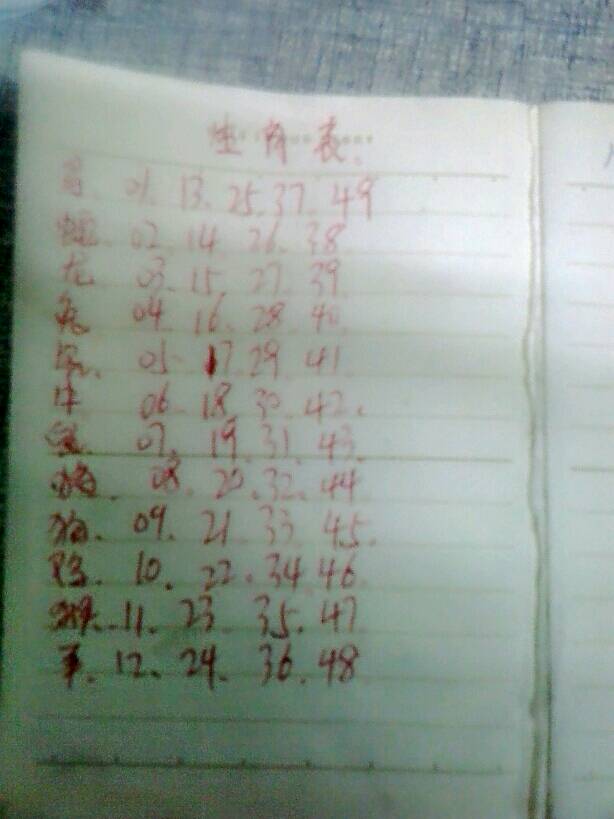 生肖表.
马. 01. 13. 25. 37. 49
蛇. 02. 14. 26. 38
龙 03. 15. 27. 39
兔 04. 16. 28. 40
虎. 05. 17 29. 41
牛 06. 18. 30. 42.
鼠. 07. 19. 31. 43
猪. 08. 20. 32. 44
狗. 09. 21 33 45.
鸡. 10. 22. 34 46.
猴. 11. 23 35. 47
羊. 12. 24. 36. 48